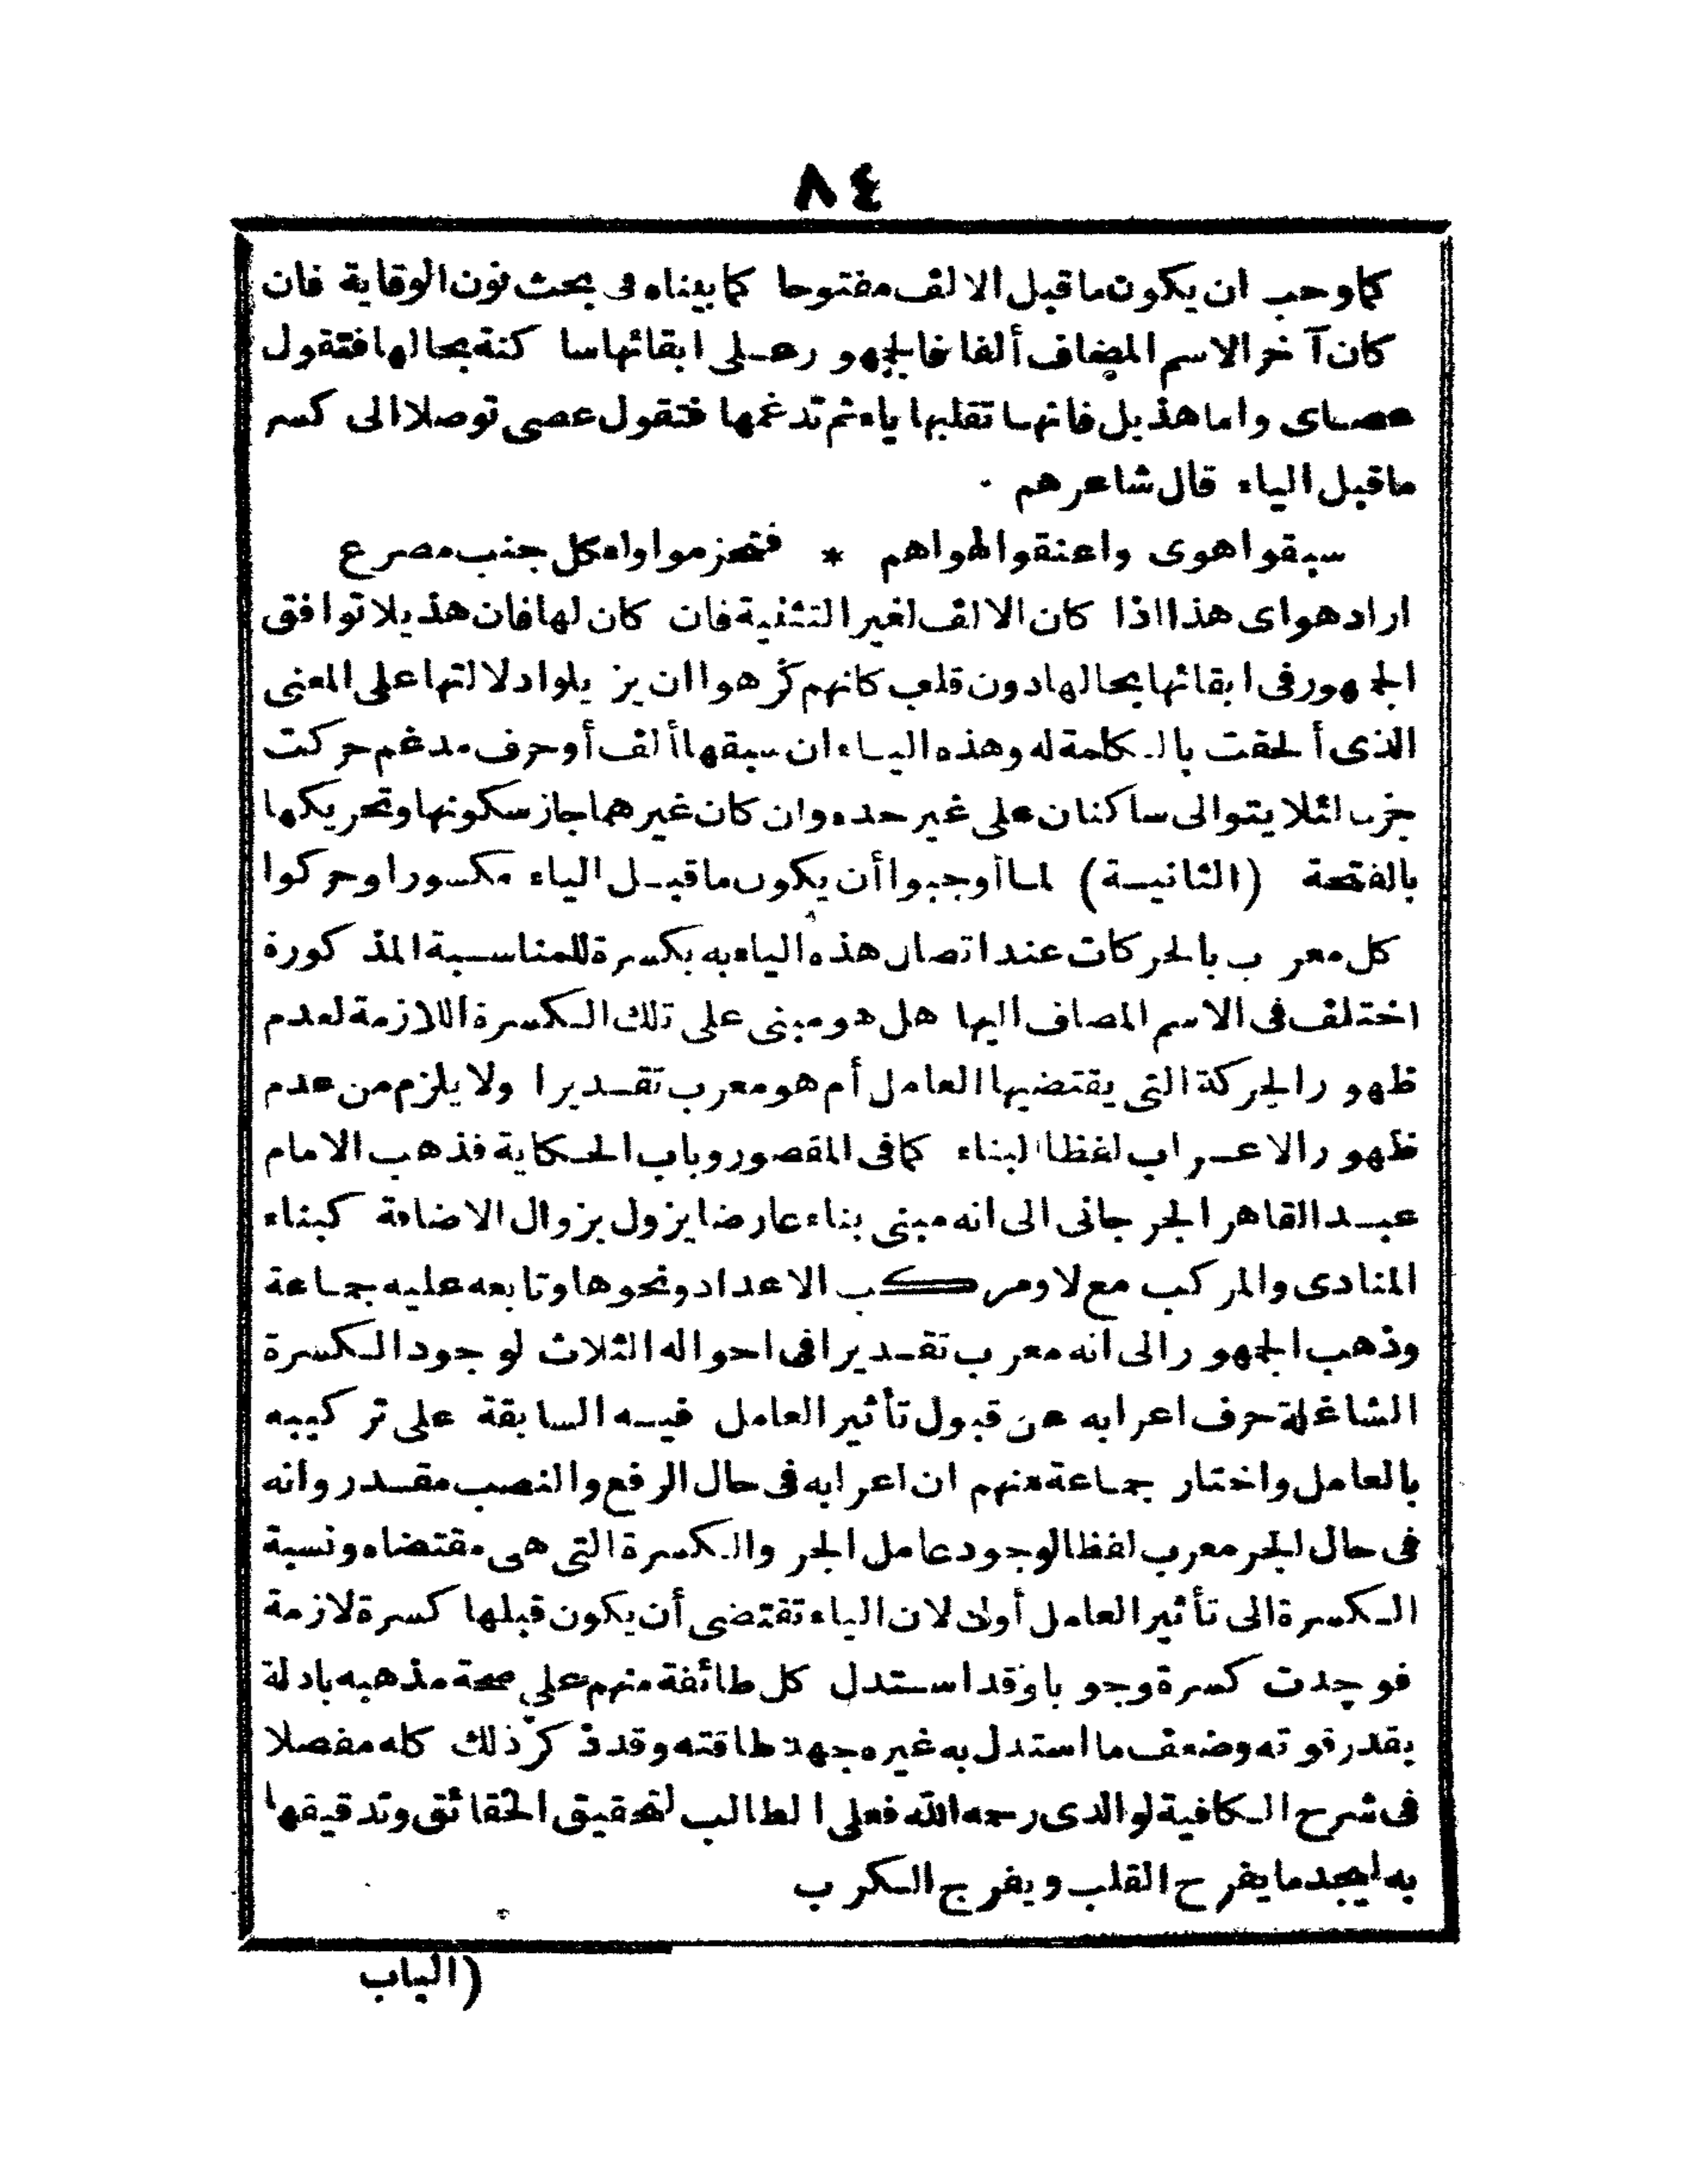 ٨٤
كما وجب ان يكون ما قبل الالف مفتوحا كما بيناه فى بحث نون الوقاية فان
كان آخر الاسم المضاف ألفا فالجهور على ابقائها ساكنة بحالها فتقول
عصاى واما هذيل فانها تقلبها ياء ثم تدغمها فتقول عصى توصلا الى كسر
ما قبل الياء قال شاعرهم
سبقوا هوى واعنقوا لهواهم * فتخرموا ولكل جنب مصرع
اراد هواى هذا اذا كان الالف لغير التثنية فان كان لها فان هذيلا توافق
الجمهور فى ابقائها بحالها دون قلب كانهم كرهوا ان يزيلوا دلالتها على المعنى
الذى ألحقت بالكلمة له وهذه الياء ان سبقها ألف أو حرف مدغم حركت
جزما لئلا يتوالى ساكنان على غير حده وان كان غيرهما جاز سكونها وتحريكها
بالفتحة (الثانية) لما أوجبوا أن يكون ما قبل الياء مكسورا وحركوا
كل معرب بالحركات عند اتصال هذه الياء به بكسرة للمناسبة المذكورة
اختلف فى الاسم المضاف اليها هل هو مبنى على تلك الكسرة اللازمة لعدم
ظهور الحركة التى يقتضيها العامل أم هو معرب تقديرا ولا يلزم من عدم
ظهور الاعراب لفظا البناء كما فى المقصور وباب الحكاية فذهب الامام
عبد القاهر الجرجانى الى انه مبنى بناء عارضا يزول بزوال الاضافة كبناء
المنادى والمركب مع لا ومركب الاعداد ونحوها وتابعه عليه جماعة
وذهب الجهور الى انه معرب تقديرا فى احواله الثلاث لوجود الكسرة
الشاغلة حرف اعرابه عن قبول تأثير العامل فيه السابقة على تركيبه
بالعامل واختار جماعة منهم ان اعرابه فى حال الرفع والنصب مقدر وانه
فى حال الجر معرب لفظا لوجود عامل الجر والكسرة التى هى مقتضاه ونسبة
الكسرة الى تأثير العامل أولى لان الياء تقتضى أن يكون قبلها كسرة لازمة
فوجدت كسرة وجوبا وقد استدل كل طائفة منهم على صحة مذهبه بادلة
بقدر قوته وضعف ما استدل به غيره جهد طاقته وقد ذكر ذلك كله مفصلا
فى شرح الكافية لوالدى رحمه الله فعلى الطالب لتحقيق الحقائق وتدقيقها
به ليجد ما يفرح القلب ويفرج الكرب
(الباب